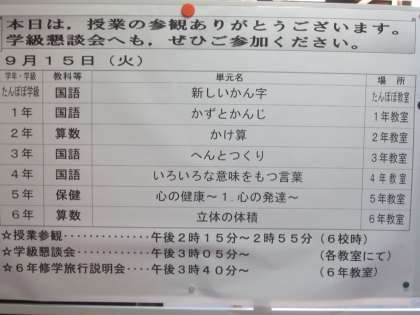 本日は，授業の参観ありがとうございます。
学級懇談会へも，ぜひご参加ください。
９月１５日（火）
学年・学級 教科等 単元名 場所
たんぽぽ学級 国語 新しいかん字 たんぽぽ教室
１年 国語 かずとかんじ １年教室
２年 算数 かけ算 ２年教室
３年 国語 へんとつくり ３年教室
４年 国語 いろいろな意味をもつ言葉 ４年教室
５年 保健 心の健康～１.心の発達～ ５年教室
６年 算数 立体の体積 ６年教室
☆授業参観‥‥‥‥‥‥午後２時１５分～２時５５分（６校時）
☆学級懇談会‥‥‥‥‥午後３時０５分～ （各教室にて）
☆６年修学旅行説明会‥‥午後３時４０分～ （６年教室）